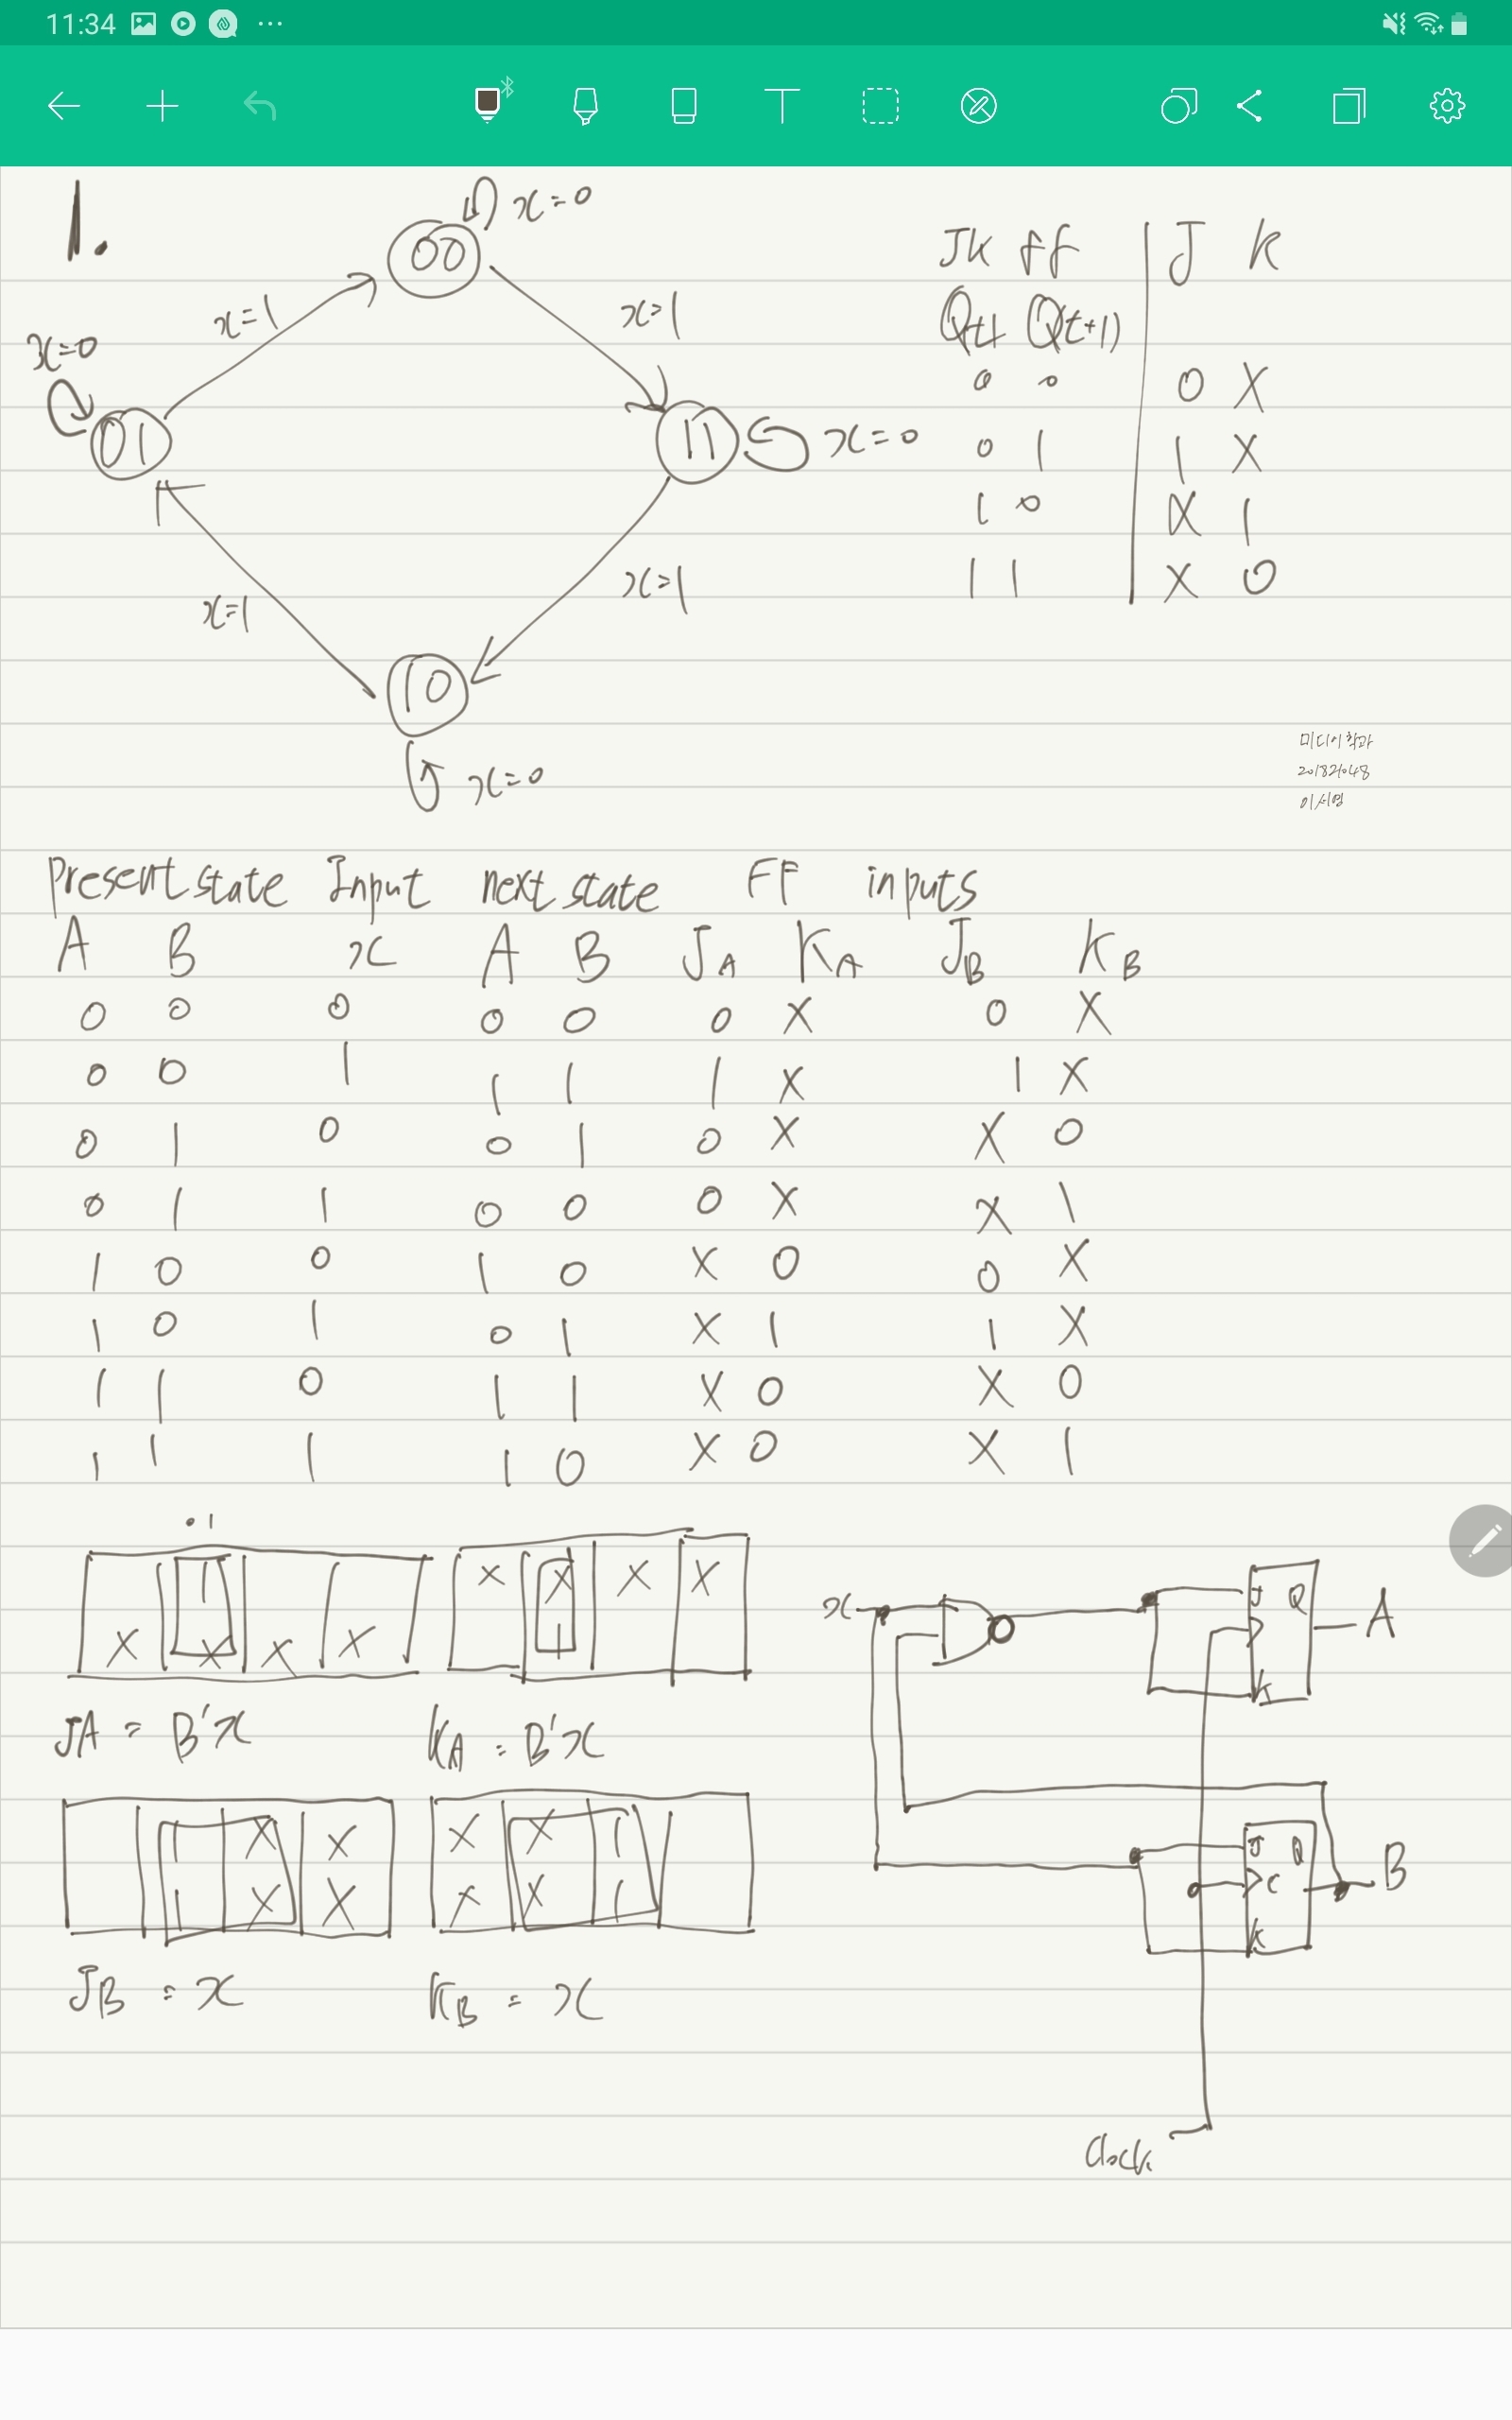 11:34
1.
x=0
00
x=1
x=1
x=0
01
11
x=0
x=1
x=1
10
x=0
JK ff J K
Qt Q(t+1)
0 0 0 X
0 1 1 X
1 0 X 1
1 1 X 0
미디어학과
201821048
Present state Input next state FF inputs
A B x A B JA KA JB KB
0 0 0 0 0 0 X 0 X
0 0 1 1 1 1 X 1 X
0 1 0 0 1 0 X X 0
0 1 1 0 0 0 X X 1
1 0 0 1 0 X 0 0 X
1 0 1 0 1 X 1 1 X
1 1 0 1 1 X 0 X 0
1 1 1 1 0 X 0 X 1
01
1 X X X X
X X X X 1
JA = B'x KA = B'x
1 X X X X 1
1 X X X X 1
JB = x KB = x
x
J Q
A
K
J Q
C B
K
Clock